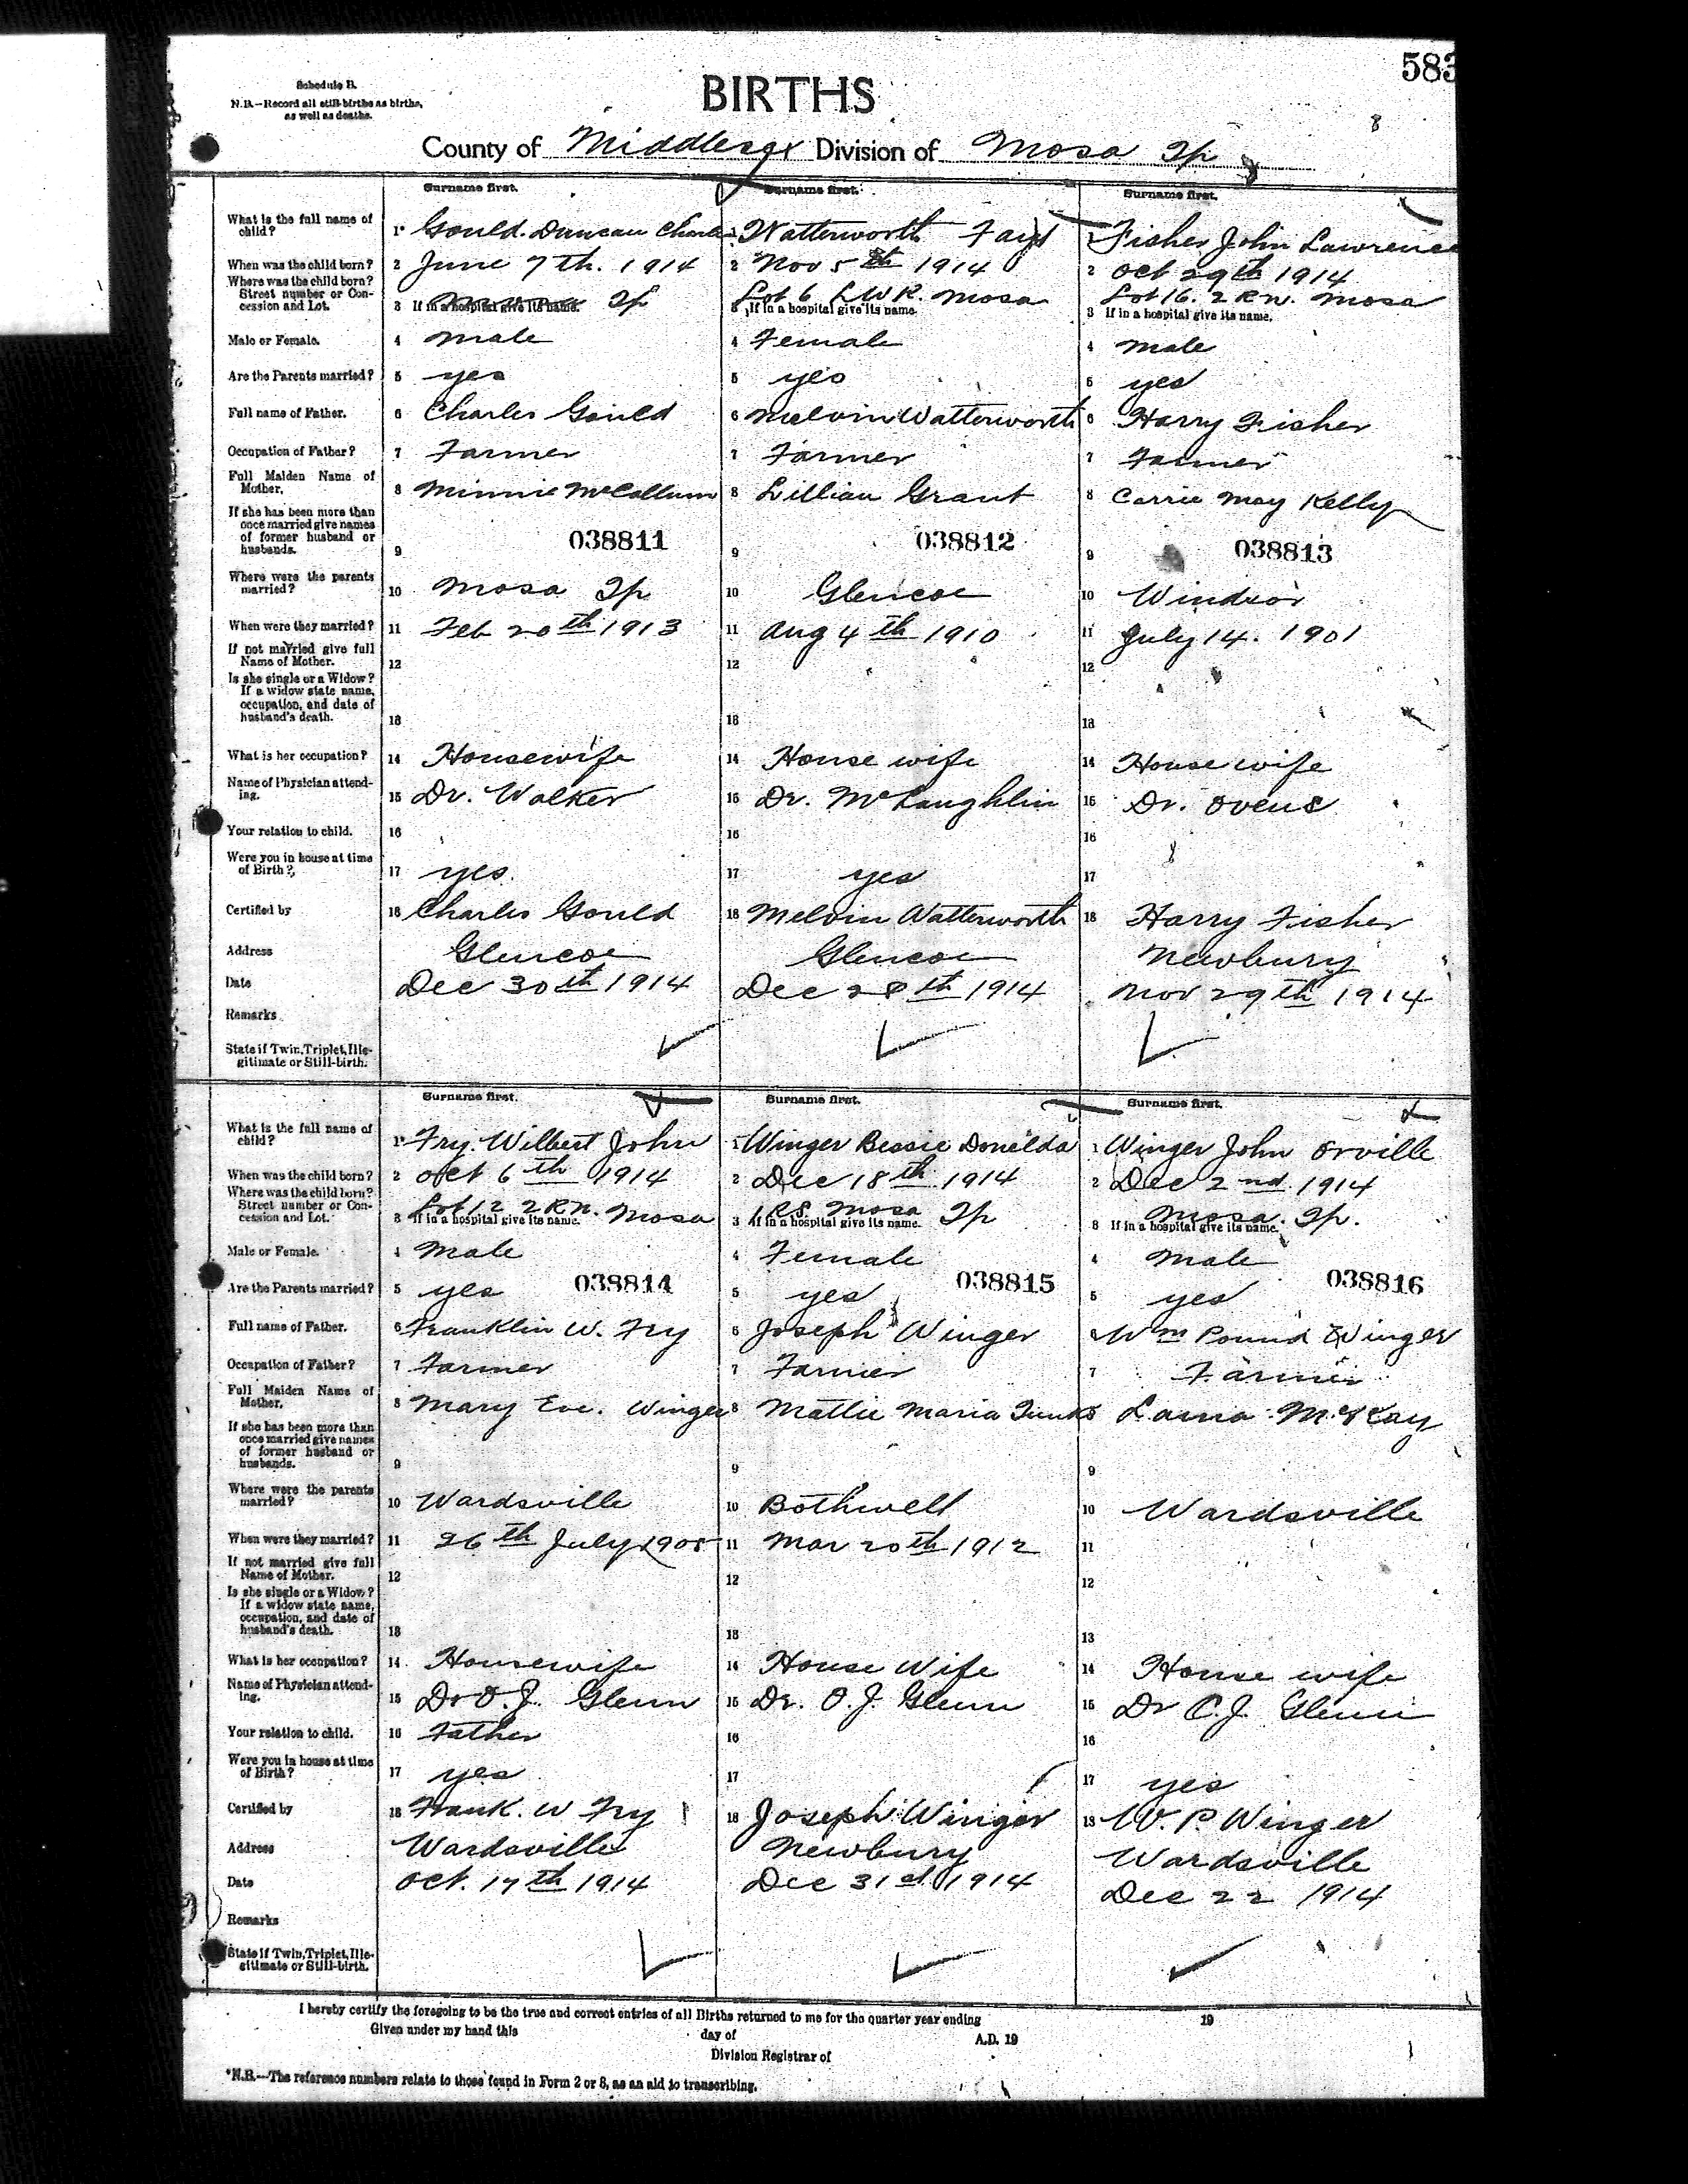 583
Schedule B.
BIRTHS
N.B.—Record all still-births as births,
as well as deaths.
8
County of Middlesex Division of Mosa Tp
Surname first. Surname first. Surname first.
What is the full name of child? 1 Gould. Duncan Charles 1 Watterworth 1 Fisher John Lawrence
When was the child born? 2 June 7th. 1914 2 Nov 5th 1914 2 Oct 29th 1914
Where was the child born? Street number or Concession and Lot. 3 If in a hospital give its name. Mosa Tp 3 If in a hospital give its name. Lot 6 LWR. Mosa 3 If in a hospital give its name. Lot 16. 2 RN. Mosa
Male or Female. 4 Male 4 Female 4 Male
Are the Parents married? 5 yes 5 yes 5 yes
Full name of Father. 6 Charles Gould 6 Melvin Watterworth 6 Harry Fisher
Occupation of Father? 7 Farmer 7 Farmer 7 Farmer
Full Maiden Name of Mother. 8 Minnie McCallum 8 Lillian Grant 8 Carrie May Kelly
If she has been more than once married give names of former husband or husbands. 9 038811 9 038812 9 038813
Where were the parents married? 10 Mosa Tp 10 Glencoe 10 Windsor
When were they married? 11 Feb 20th 1913 11 Aug 4th 1910 11 July 14. 1901
If not married give full Name of Mother. 12 12 12
Is she single or a Widow? If a widow state name, occupation, and date of husband's death. 13 13 13
What is her occupation? 14 Housewife 14 House wife 14 House wife
Name of Physician attending. 15 Dr. Walker 15 Dr. McLaughlin 15 Dr. Ovens
Your relation to child. 16 16 16
Were you in house at time of Birth? 17 yes. 17 yes 17
Certified by 18 Charles Gould 18 Melvin Watterworth 18 Harry Fisher
Address Glencoe Glencoe Newbury
Date Dec 30th 1914 Dec 28th 1914 Nov 29th 1914
Remarks
State if Twin, Triplet, Illegitimate or Still-birth.
Surname first. Surname first. Surname first.
What is the full name of child? 1 Fry. Wilbert John 1 Winger Bessie Donelda 1 Winger John Orville
When was the child born? 2 Oct 6th 1914 2 Dec 18th 1914 2 Dec 2nd 1914
Where was the child born? Street number or Concession and Lot. 3 If in a hospital give its name. Lot 12 2 RN. Mosa 3 If in a hospital give its name. 1 RS. Mosa Tp 3 If in a hospital give its name. Mosa. Tp.
Male or Female. 4 Male 4 Female 4 Male
Are the Parents married? 5 yes 038814 5 yes 038815 5 yes 038816
Full name of Father. 6 Franklin W. Fry 6 Joseph Winger 6 Wm Pound Winger
Occupation of Father? 7 Farmer 7 Farmer 7 Farmer
Full Maiden Name of Mother. 8 Mary Eve. Winger 8 Mattie Maria 8 McKay
If she has been more than once married give names of former husband or husbands. 9 9 9
Where were the parents married? 10 Wardsville 10 Bothwell 10 Wardsville
When were they married? 11 26th July 11 Mar 20th 1912 11
If not married give full Name of Mother. 12 12 12
Is she single or a Widow? If a widow state name, occupation, and date of husband's death. 13 13 13
What is her occupation? 14 Housewife 14 House Wife 14 House wife
Name of Physician attending. 15 Dr O. J. Glenn 15 Dr. O. J. Glenn 15 Dr O. J. Glenn
Your relation to child. 16 Father 16 16
Were you in house at time of Birth? 17 yes 17 17 yes
Certified by 18 Frank. W Fry 18 Joseph Winger 18 W. P. Winger
Address Wardsville Newbury Wardsville
Date Oct. 17th 1914 Dec 31st 1914 Dec 22 1914
Remarks
State if Twin, Triplet, Illegitimate or Still-birth.
I hereby certify the foregoing to be the true and correct entries of all Births returned to me for the quarter year ending 19
Given under my hand this day of A.D. 19
Division Registrar of
*N.B.—The reference numbers relate to those found in Form 2 or 8, as an aid to transcribing.